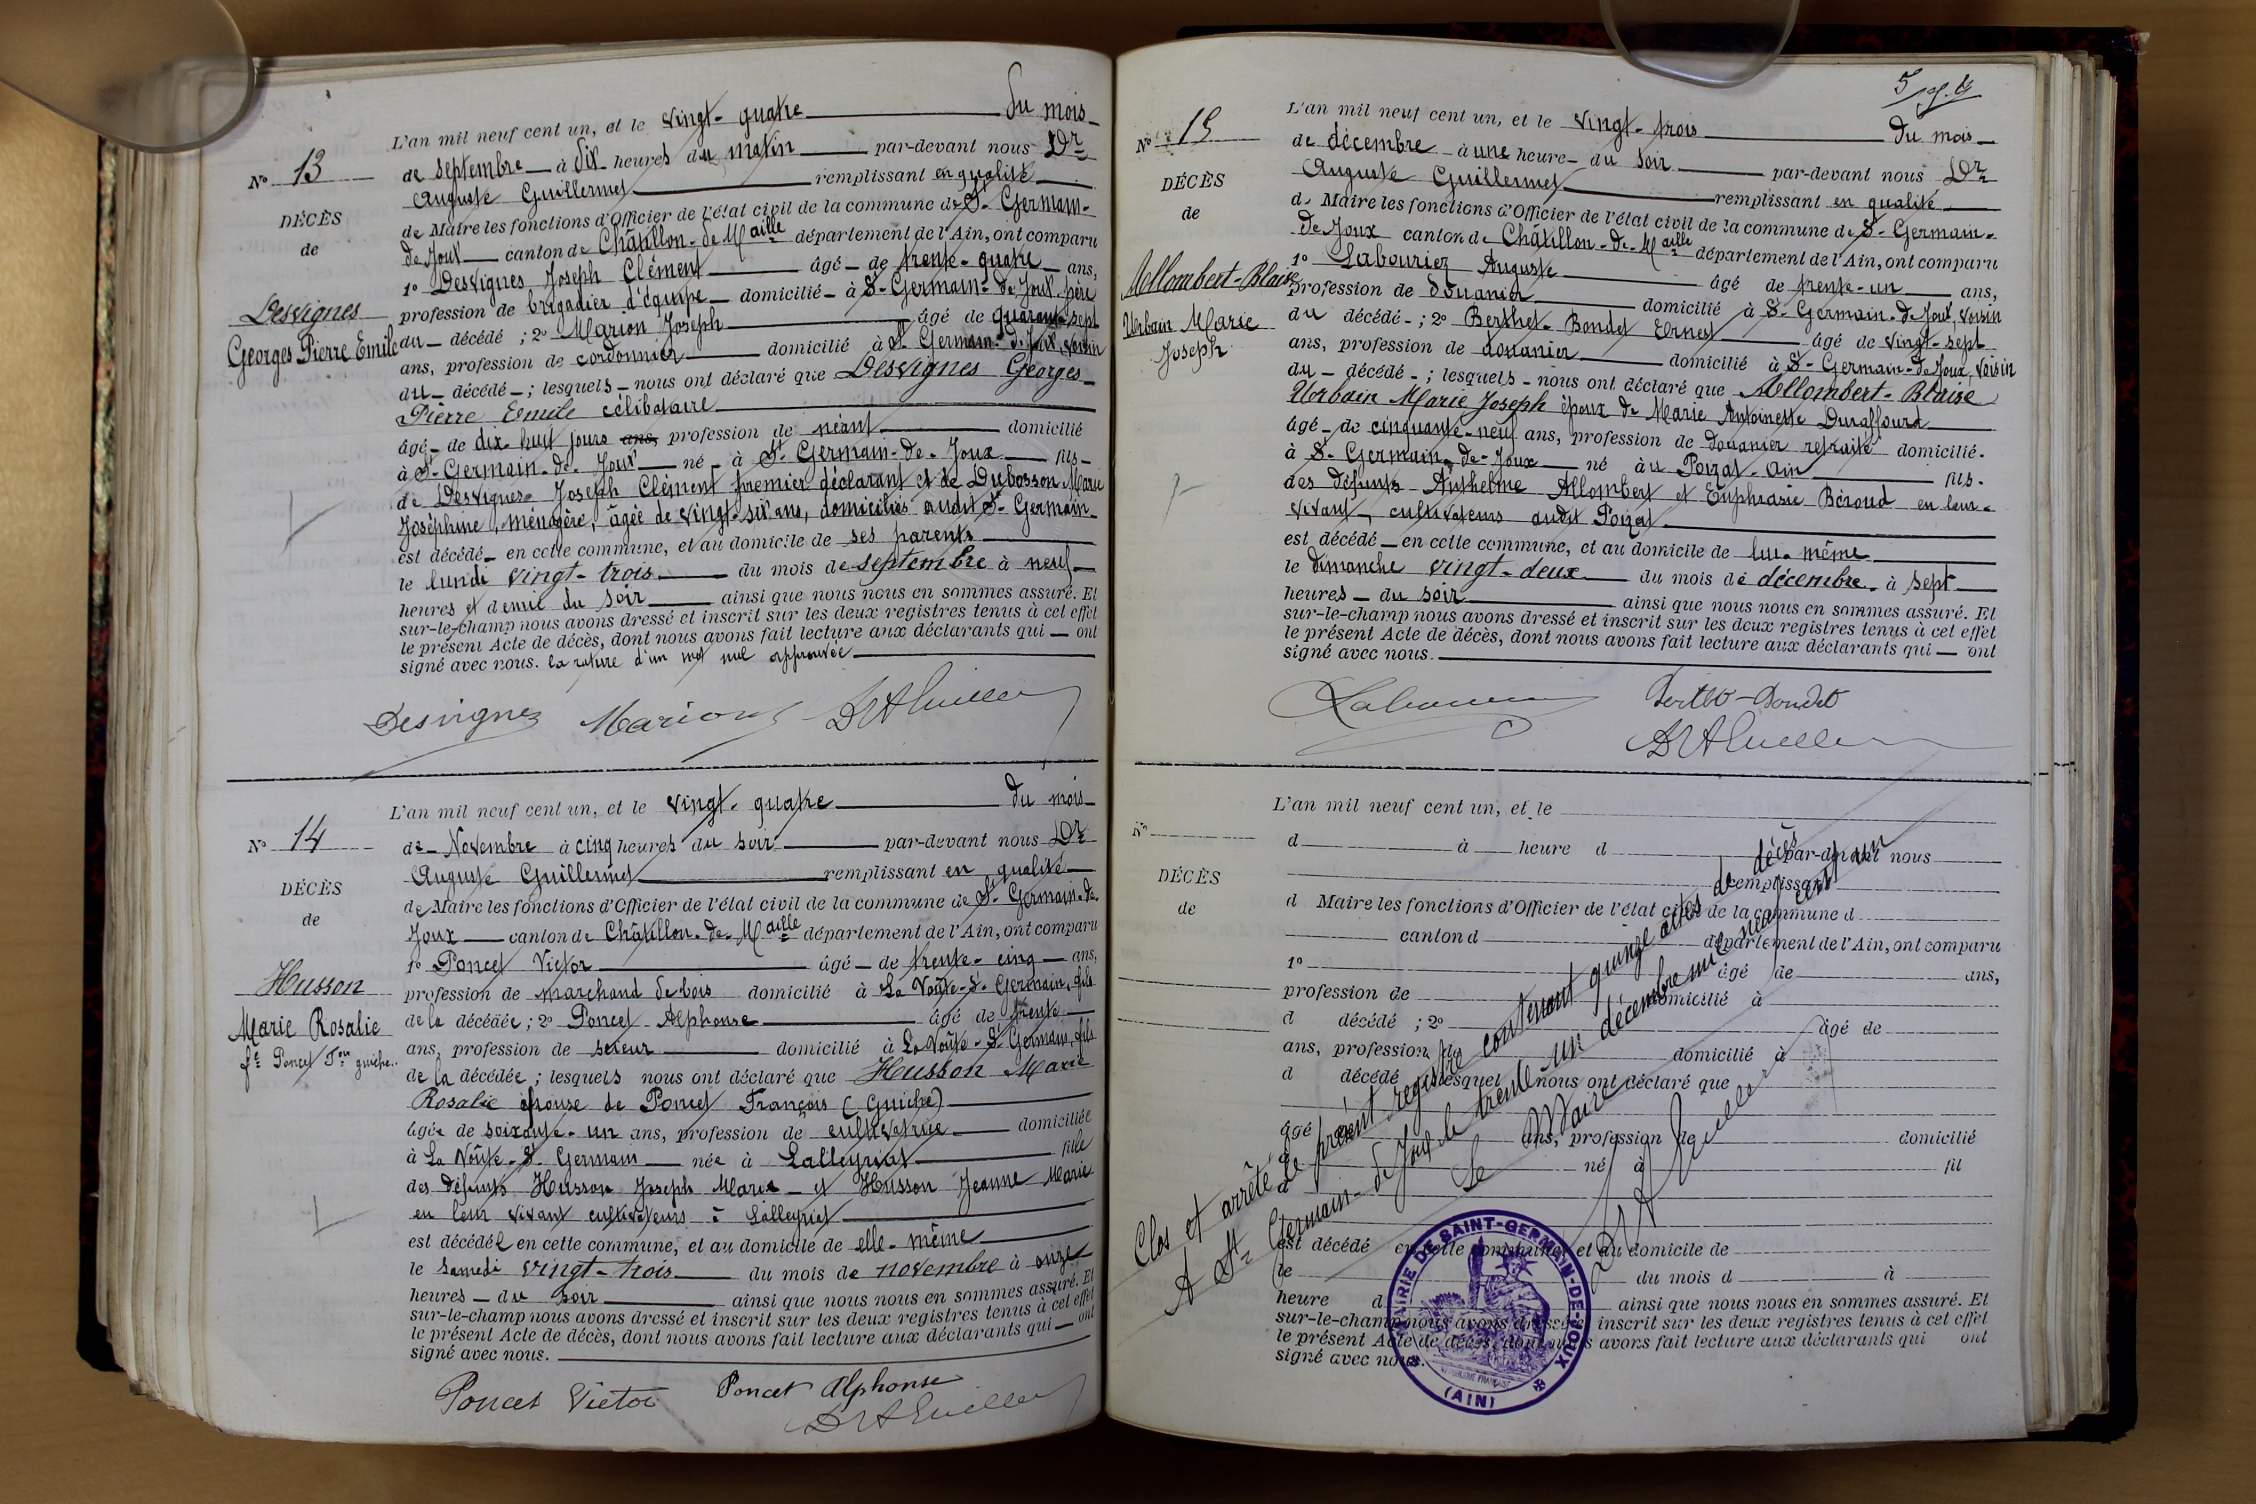 N° 13
DÉCÈS
de
Desvignes
Georges Pierre Emile
L'an mil neuf cent un, et le vingt-quatre du mois
de septembre à dix heures du matin par-devant nous Dr
Auguste Guillermet remplissant en qualité
de Maire les fonctions d'Officier de l'état civil de la commune de St-Germain-
de Joux canton de Châtillon-de-Maille département de l'Ain, ont comparu
1° Desvignes Joseph Clément âgé de trente-quatre ans,
profession de brigadier d'équipe domicilié à St-Germain-de-Joux, père
du décédé ; 2° Marion Joseph âgé de quarante-sept
ans, profession de cordonnier domicilié à St Germain-de-Joux, voisin
du décédé ; lesquels nous ont déclaré que Desvignes Georges
Pierre Emile célibataire
âgé de dix-huit jours ans, profession de néant domicilié
à St-Germain-de-Joux né à St-Germain-de-Joux fils
de Desvignes Joseph Clément premier déclarant et de Dubosson Marie
Joséphine, ménagère, âgée de vingt-six ans, domiciliés audit St-Germain
est décédé en cette commune, et au domicile de ses parents
le lundi vingt-trois du mois de septembre à neuf
heures et demie du soir ainsi que nous nous en sommes assuré. Et
sur-le-champ nous avons dressé et inscrit sur les deux registres tenus à cet effet
le présent Acte de décès, dont nous avons fait lecture aux déclarants qui ont
signé avec nous. la rature d'un mot nul approuvée
Desvignes Marion Dr A Guiller
N° 14
DÉCÈS
de
Husson
Marie Rosalie
fe Poncet Fçois guiche
L'an mil neuf cent un, et le vingt-quatre du mois
de Novembre à cinq heures du soir par-devant nous Dr
Auguste Guillermet remplissant en qualité
de Maire les fonctions d'Officier de l'état civil de la commune de St-Germain-de-
Joux canton de Châtillon-de-Maille département de l'Ain, ont comparu
1° Poncet Victor âgé de trente-cinq ans,
profession de marchand de bois domicilié à La Voûte-St-Germain, fils
de la décédée ; 2° Poncet Alphonse âgé de trente
ans, profession de scieur domicilié à La Voûte-St-Germain, fils
de la décédée ; lesquels nous ont déclaré que Husson Marie
Rosalie épouse de Poncet François (Guiche)
âgée de soixante-un ans, profession de cultivatrice domiciliée
à La Voûte-St-Germain née à Lalleyriat fille
des défunts Husson Joseph Marie et Husson Jeanne Marie
en leur vivant cultivateurs à Lalleyriat
est décédée en cette commune, et au domicile de elle-même
le samedi vingt-trois du mois de novembre à onze
heures du soir ainsi que nous nous en sommes assuré. Et
sur-le-champ nous avons dressé et inscrit sur les deux registres tenus à cet effet
le présent Acte de décès, dont nous avons fait lecture aux déclarants qui ont
signé avec nous.
Poncet Victor Poncet Alphonse
Dr A Guiller
N° 15
DÉCÈS
de
Allombert-Blaise
Urbain Marie
Joseph
L'an mil neuf cent un, et le vingt-trois du mois
de décembre à une heure du soir par-devant nous Dr
Auguste Guillermet remplissant en qualité
de Maire les fonctions d'Officier de l'état civil de la commune de St-Germain-
de Joux canton de Châtillon-de-Maille département de l'Ain, ont comparu
1° Labouriez Auguste âgé de trente-un ans,
profession de douanier domicilié à St-Germain-de-Joux, voisin
du décédé ; 2° Berthet-Bondet Ernest âgé de vingt-sept
ans, profession de douanier domicilié à St-Germain-de-Joux, voisin
du décédé ; lesquels nous ont déclaré que Allombert-Blaise
Urbain Marie Joseph époux de Marie Antoinette Duraffourd
âgé de cinquante-neuf ans, profession de douanier retraité domicilié
à St-Germain-de-Joux né au Poizat-Ain fils
des défunts Anthelme Allombert et Euphrasie Béroud en leur
vivant cultivateurs audit Poizat
est décédé en cette commune, et au domicile de lui-même
le dimanche vingt-deux du mois de décembre à sept
heures du soir ainsi que nous nous en sommes assuré. Et
sur-le-champ nous avons dressé et inscrit sur les deux registres tenus à cet effet
le présent Acte de décès, dont nous avons fait lecture aux déclarants qui ont
signé avec nous.
Berthet-Bondet
Dr A Guiller
N°
DÉCÈS
de
L'an mil neuf cent un, et le
d à heure d par-devant nous
remplissant
d Maire les fonctions d'Officier de l'état civil de la commune d
canton d département de l'Ain, ont comparu
1° âgé de ans,
profession de domicilié à
d décédé ; 2° âgé de
ans, profession de domicilié à
d décédé ; lesquel nous ont déclaré que
âgé de ans, profession de domicilié
à né à fil
d
est décédé en cette commune, et au domicile de
le du mois d à
heure d ainsi que nous nous en sommes assuré. Et
sur-le-champ nous avons dressé et inscrit sur les deux registres tenus à cet effet
le présent Acte de décès, dont nous avons fait lecture aux déclarants qui ont
signé avec nous.
Clos et arrêté le présent registre contenant quinze actes de décès
A St Germain-de Joux le trente-un décembre mil neuf cent un
Le Maire
Dr A Guiller
MAIRIE DE SAINT-GERMAIN-DE-JOUX
(AIN)